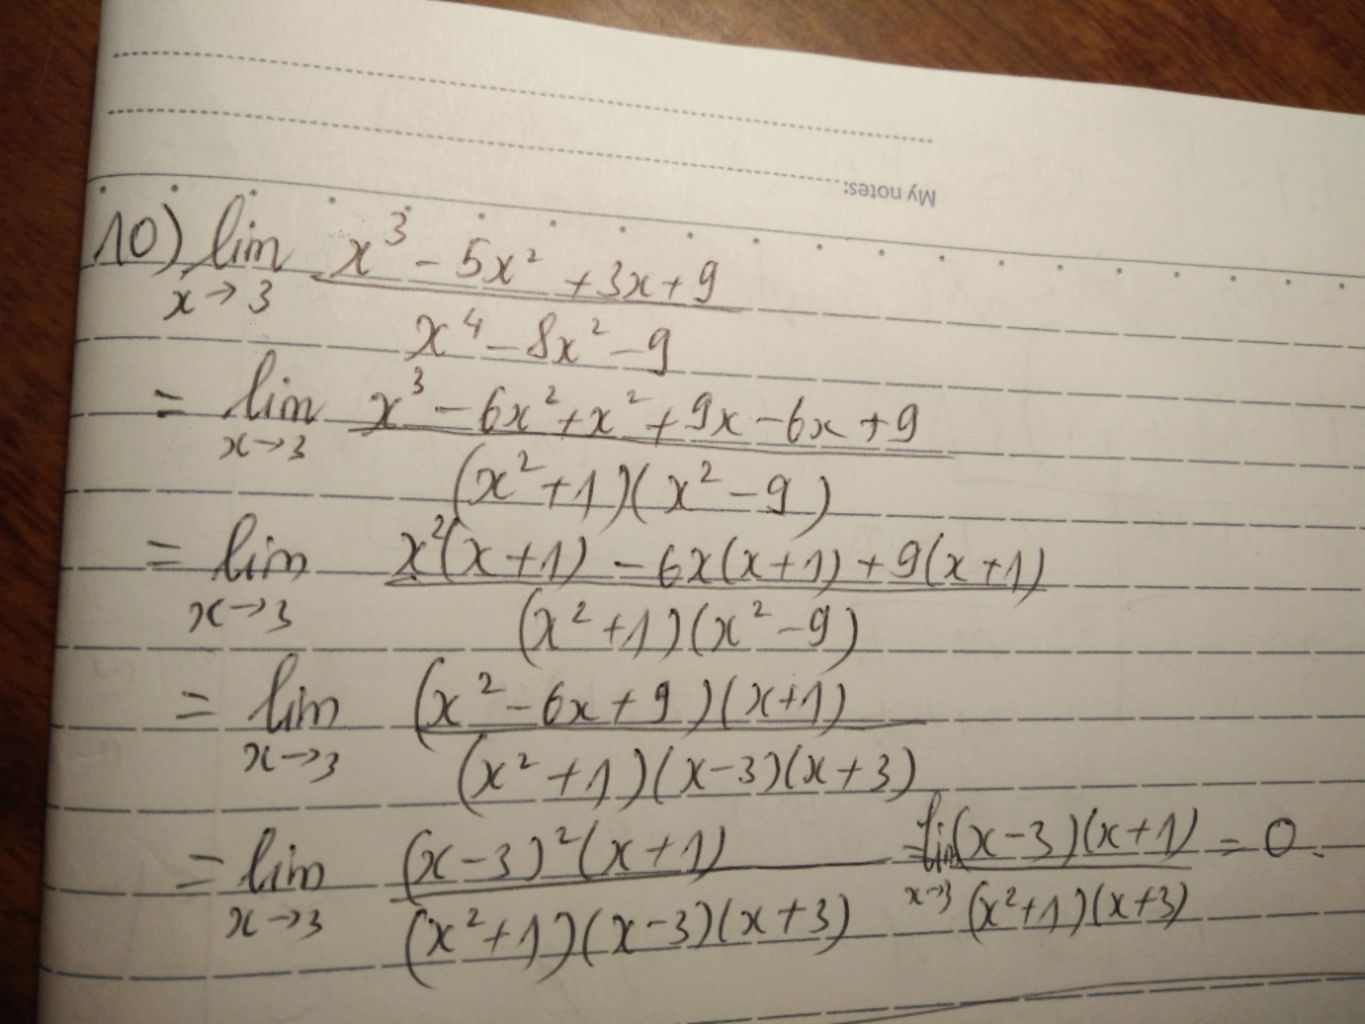 My notes:
10) lim x→3 (x³ - 5x² + 3x + 9) / (x⁴ - 8x² - 9)
= lim x→3 (x³ - 6x² + x² + 9x - 6x + 9) / ((x² + 1)(x² - 9))
= lim x→3 (x²(x+1) - 6x(x+1) + 9(x+1)) / ((x² + 1)(x² - 9))
= lim x→3 ((x² - 6x + 9)(x+1)) / ((x² + 1)(x-3)(x+3))
= lim x→3 ((x-3)²(x+1)) / ((x²+1)(x-3)(x+3)) = lim x→3 ((x-3)(x+1)) / ((x²+1)(x+3)) = 0.